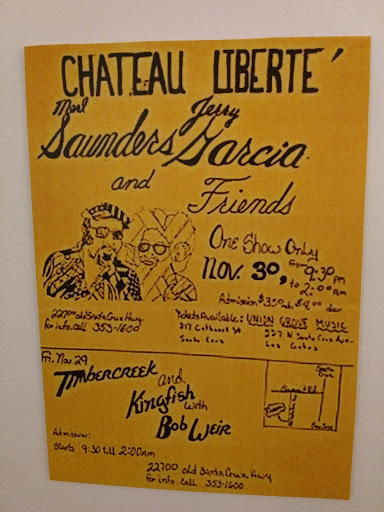 CHATEAU LIBERTE´
Merl Jerry
Saunders Garcia
and Friends
One Show Only
Nov. 30, from 9:30 PM
to 2:00 AM
Admission $3.50 adv. $4.00 door
22700 old Santa Cruz Hwy
for info. call 353-1600
Tickets Available: UNION GROVE MUSIC
317 Cathcart St
Santa Cruz
227 N Santa Cruz Ave.
Los Gatos
Fri. Nov 29
Timbercreek and
Kingfish with
Bob Weir
Admission:
Starts 9:30 till 2:00am
22700 old Santa Cruz Hwy
for info. call 353-1600
Santa
Cruz
Summit Rd
San Jose